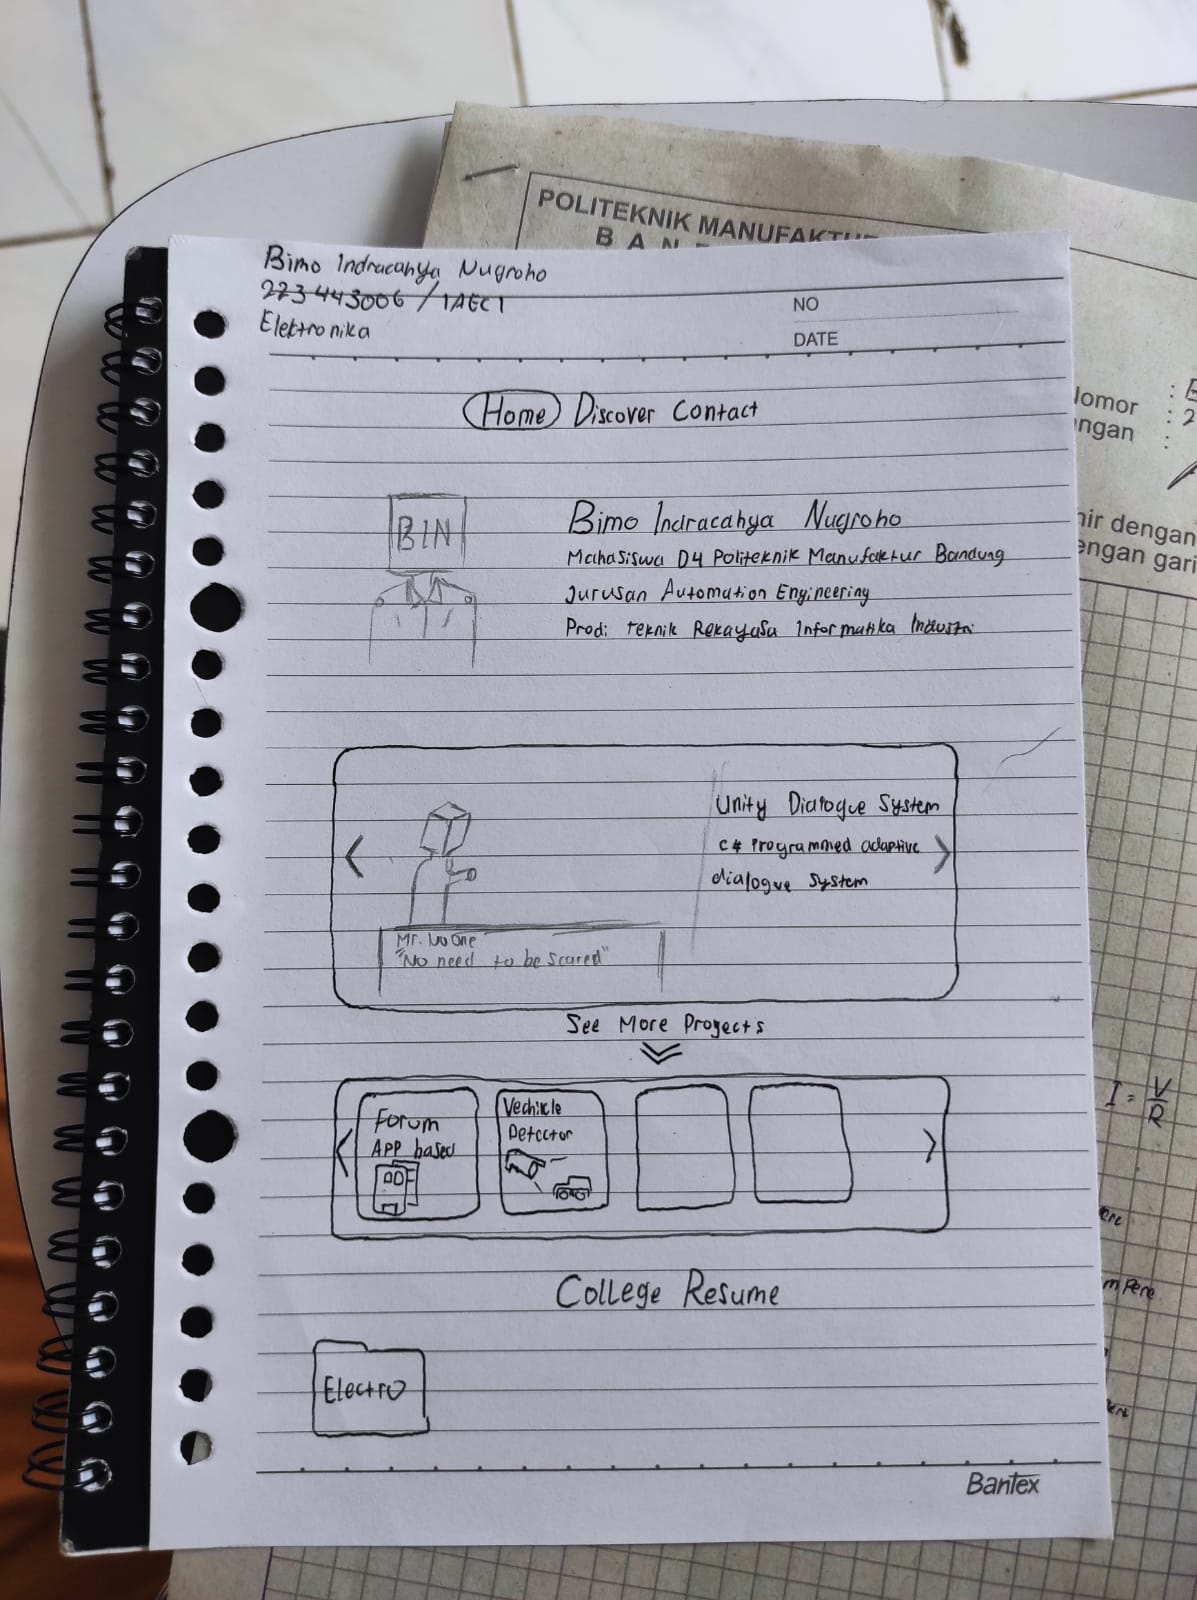 POLITEKNIK MANUFAKTUR
B A N
Bimo Indracahya Nugroho
223443006 / 1AEC1
Elektronika
NO
DATE
Home Discover Contact
BIN
Bimo Indracahya Nugroho
Mahasiswa D4 Politeknik Manufaktur Bandung
Jurusan Automation Engineering
Prodi Teknik Rekayasa Informatika Industri
Unity Dialogue System
C# Programmed adaptive
dialogue system
Mr. No One
"No need to be scared"
See More Projects
Forum
APP based
Vechikle
Detector
College Resume
Electro
Bantex
Nomor :
ngan :
hir dengan
engan gari
I = V/R
mpere